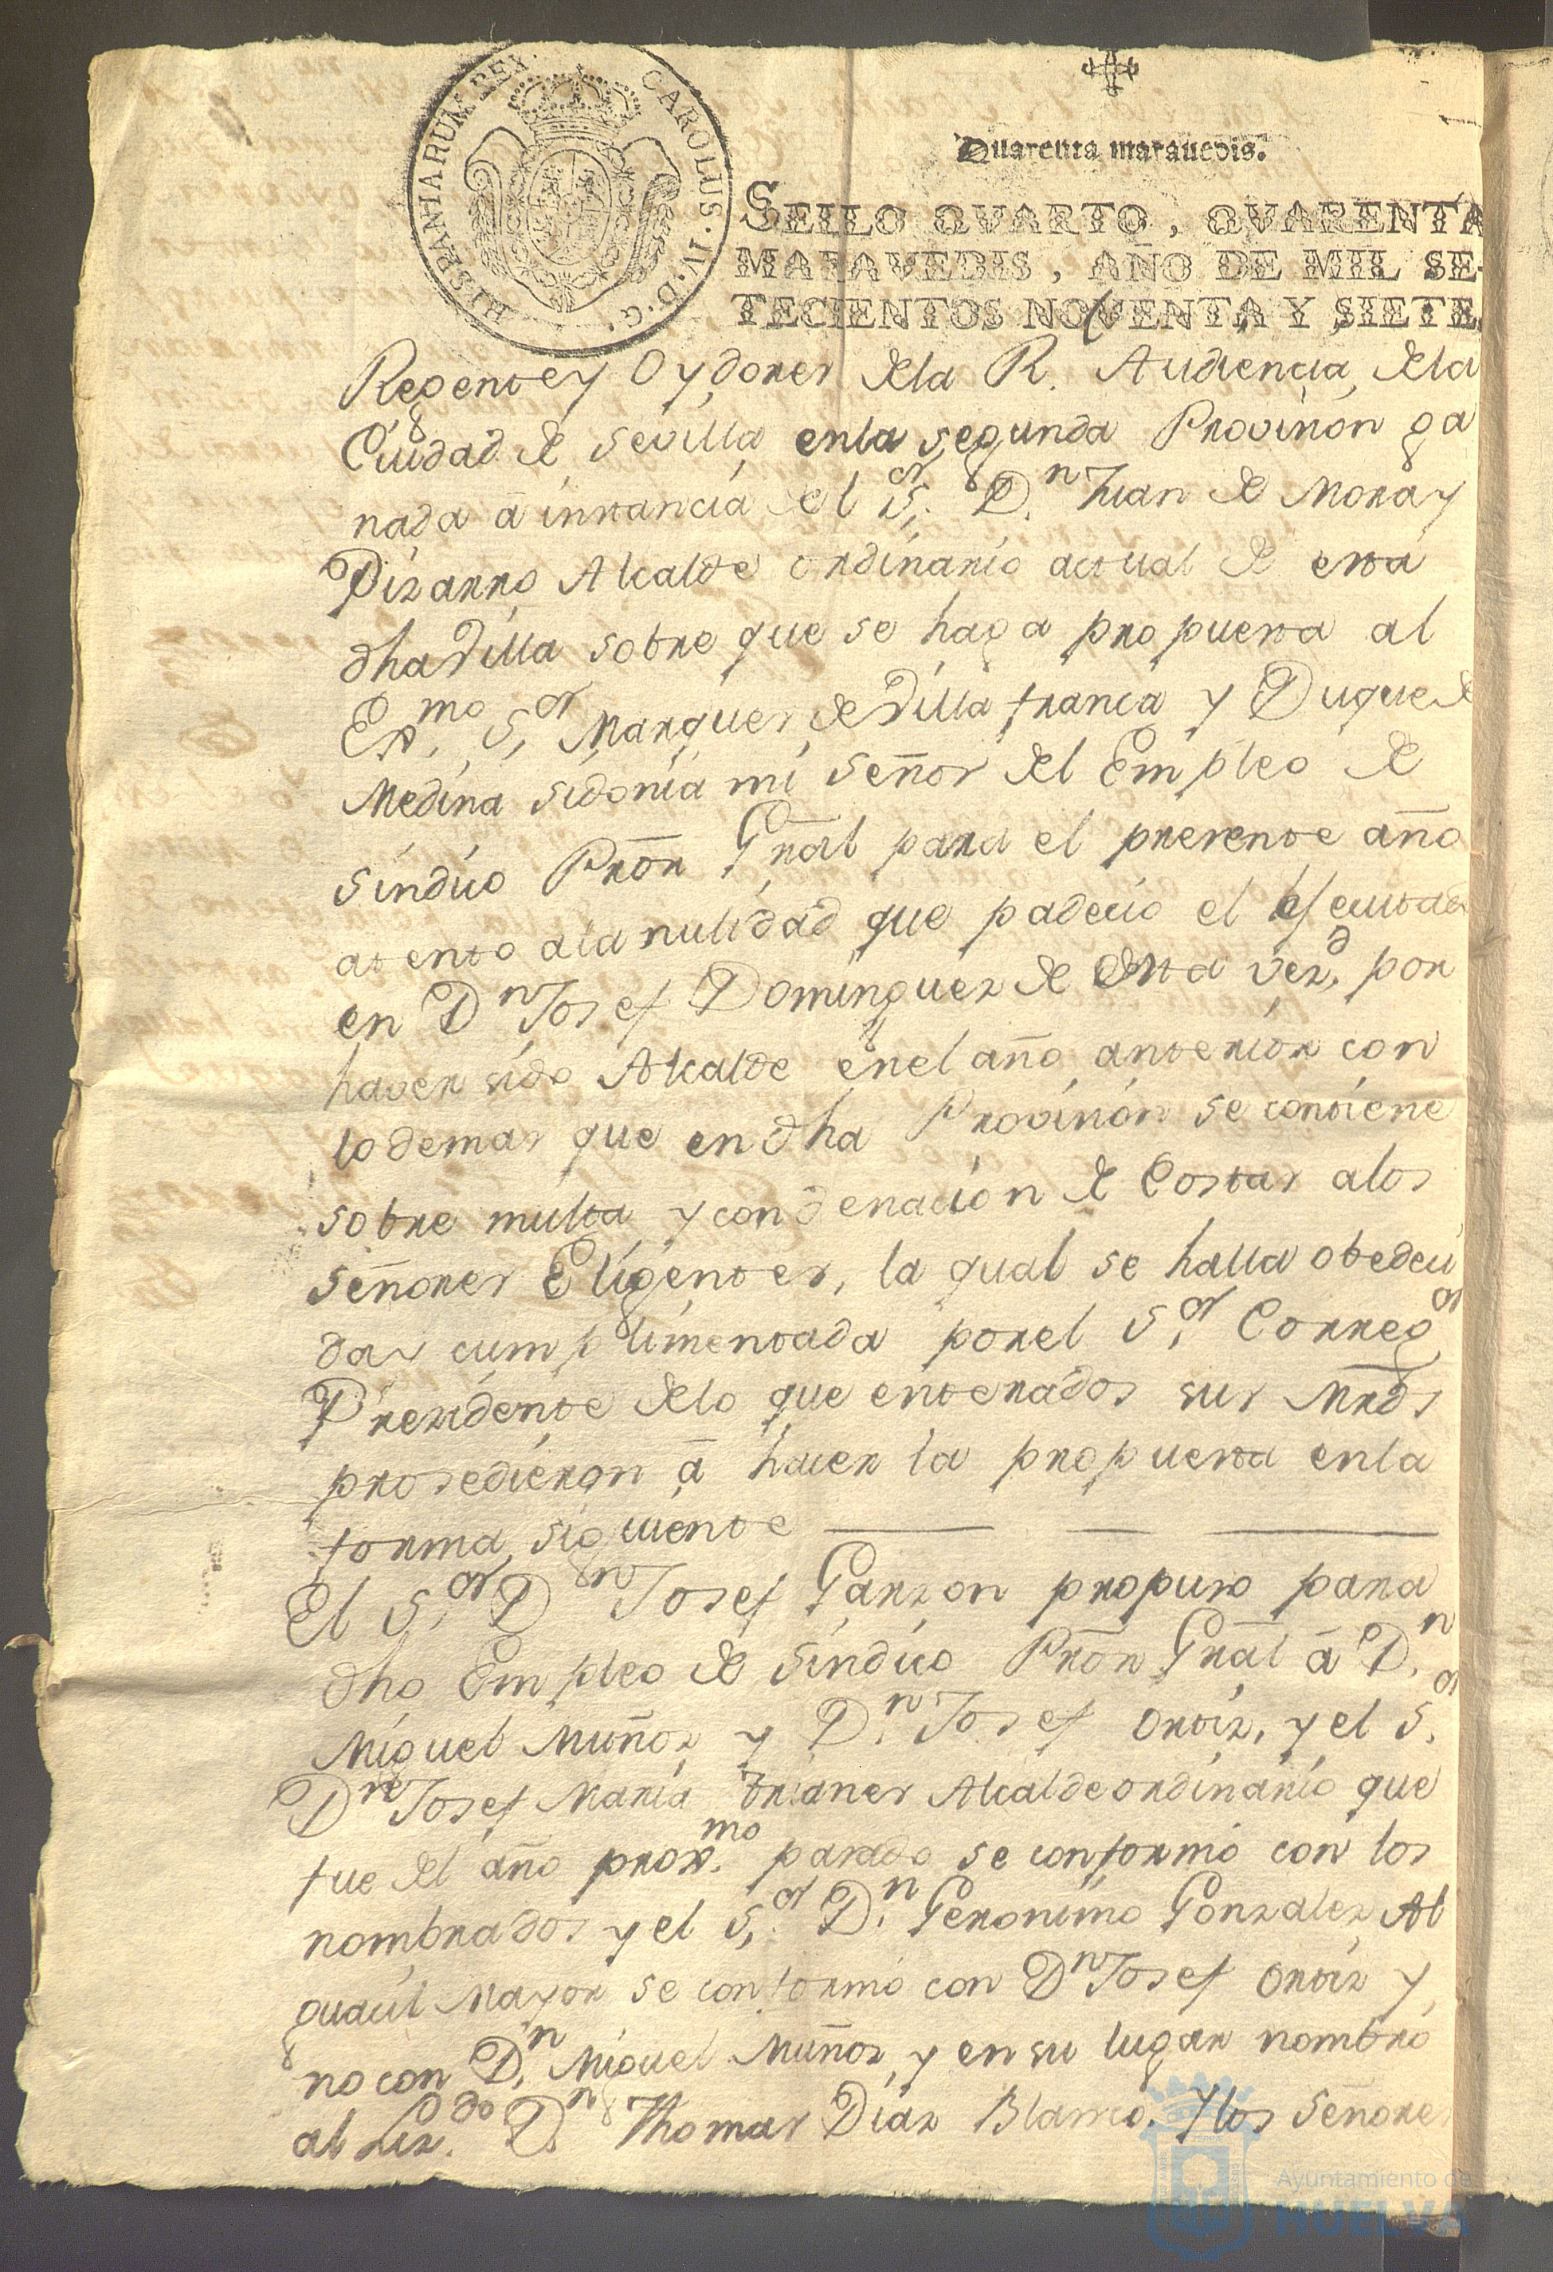 HISPANIARUM REX. CAROLUS. IV. D. G.
Quarenta marauedis.
SELLO QVARTO, QVARENTA
MARAVEDIS, AÑO DE MIL SE-
TECIENTOS NOVENTA Y SIETE.
Regente y Oydores dela R. Audiencia dela
Ciudad de Sevilla enla segunda Provision ga
nada á instancia del S.or D.n Juan de Mora y
Pizarro Alcalde ordinario actual de esta
dha Villa sobre que se haga propuesta al
Ex.mo S.or Marques de Villafranca y Duque de
Medina Sidonia mi señor del Empleo de
Sindico Prōr Grāl para el presente año
atento ala nulidad que padecio el efectuado
en D.n Josef Dominguez de esta vez.d por
haver sido Alcalde enel año anterior con
lo demas que en dha Provision se contiene
sobre multa y condenacion de Costas alos
señores Eligentes, la qual se halla obedeci
da y cumplimentada porel S.or Correg.or
Presidente delo que enterados sus Mrds
prosedieron á hacer la propuesta enla
forma siguiente
El S.or D.n Josef Garzon propuso para
dho Empleo de Sindico Prōr Grāl á D.n
Miguel Muñoz y D.n Josef Ortiz, y el S.or
D.n Josef Maria Trianes Alcalde ordinario que
fue del año prox.mo pasado se conformó con los
nombrados y el S.or D.n Geronimo Gonzalez Al
guacil Mayor se conformó con D.n Josef Ortiz y
no con D.n Miguel Muñoz y en su lugar nombró
al Liz.do D.n Thomas Diaz Blanco. Y los Señores
Ayuntamiento de
HUELVA